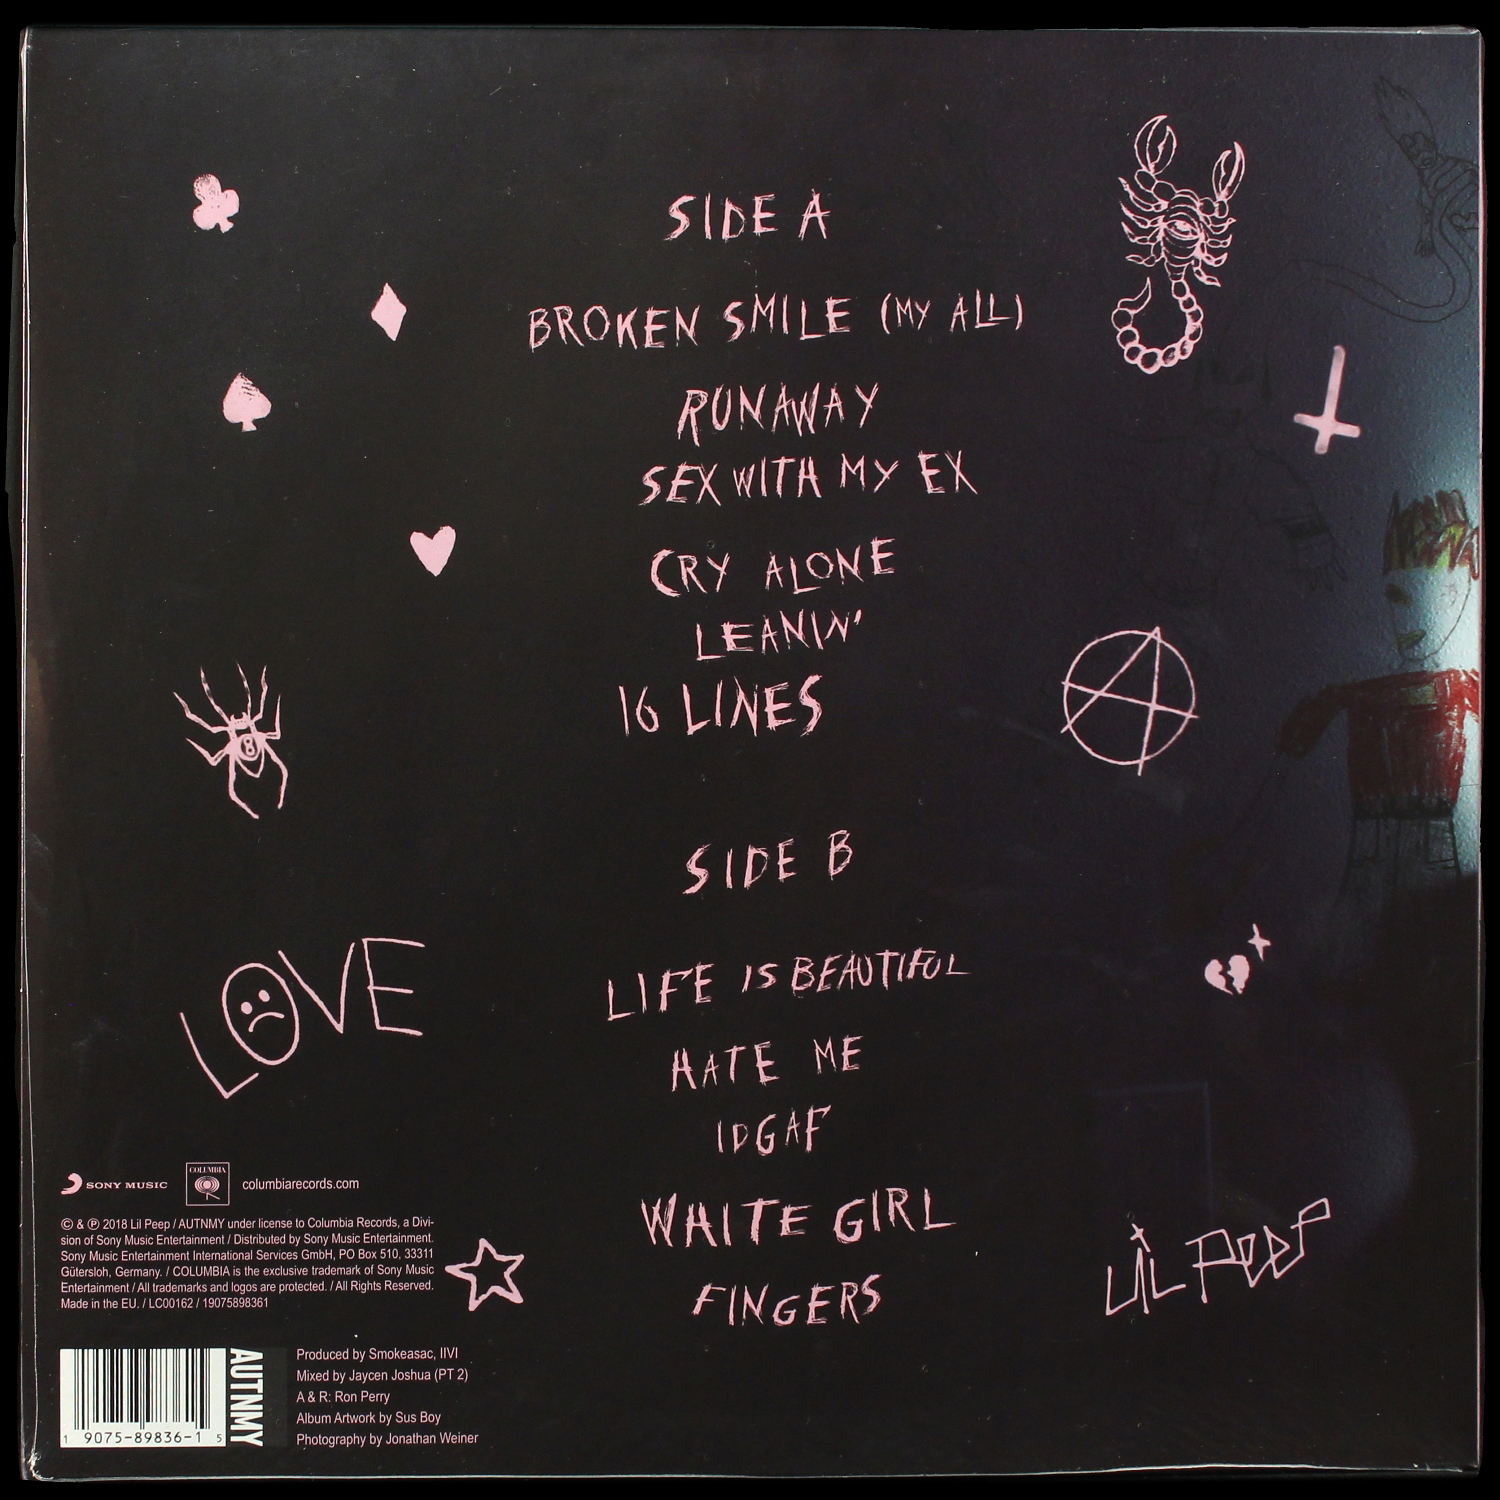 SIDE A
BROKEN SMILE (MY ALL)
RUNAWAY
SEX WITH MY EX
CRY ALONE
LEANIN'
16 LINES
SIDE B
LIFE IS BEAUTIFUL
HATE ME
IDGAF
WHITE GIRL
FINGERS
8
LOVE
LIL PEEP
SONY MUSIC
COLUMBIA
columbiarecords.com
© & ℗ 2018 Lil Peep / AUTNMY under license to Columbia Records, a Divi-
sion of Sony Music Entertainment / Distributed by Sony Music Entertainment.
Sony Music Entertainment International Services GmbH, PO Box 510, 33311
Gütersloh, Germany. / COLUMBIA is the exclusive trademark of Sony Music
Entertainment / All trademarks and logos are protected. / All Rights Reserved.
Made in the EU. / LC00162 / 19075898361
1 9075-89836-1 5
AUTNMY
Produced by Smokeasac, IIVI
Mixed by Jaycen Joshua (PT 2)
A & R: Ron Perry
Album Artwork by Sus Boy
Photography by Jonathan Weiner